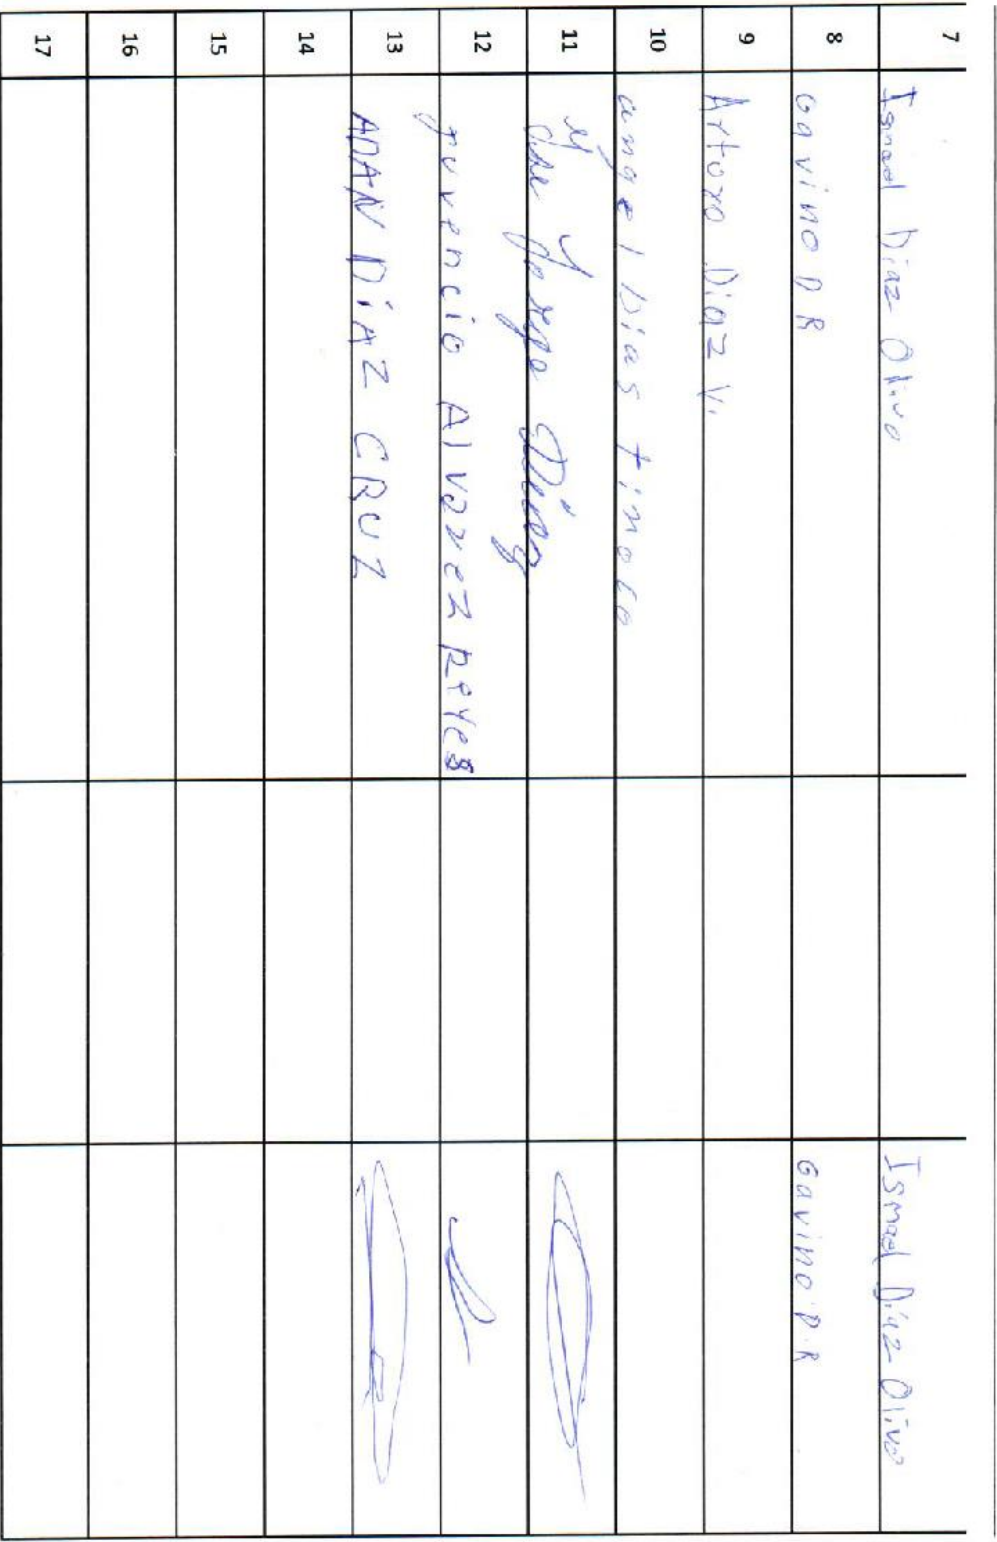 7 Ismael Diaz Olivo Ismael Diaz Olivo
8 Gavino D R Gavino D.R
9 Arturo Diaz V.
10 angel Dias timoto
11 Jorge Diaz
12 juvencio Alvarez Reyes
13 ADAN DÍAZ CRUZ
14
15
16
17